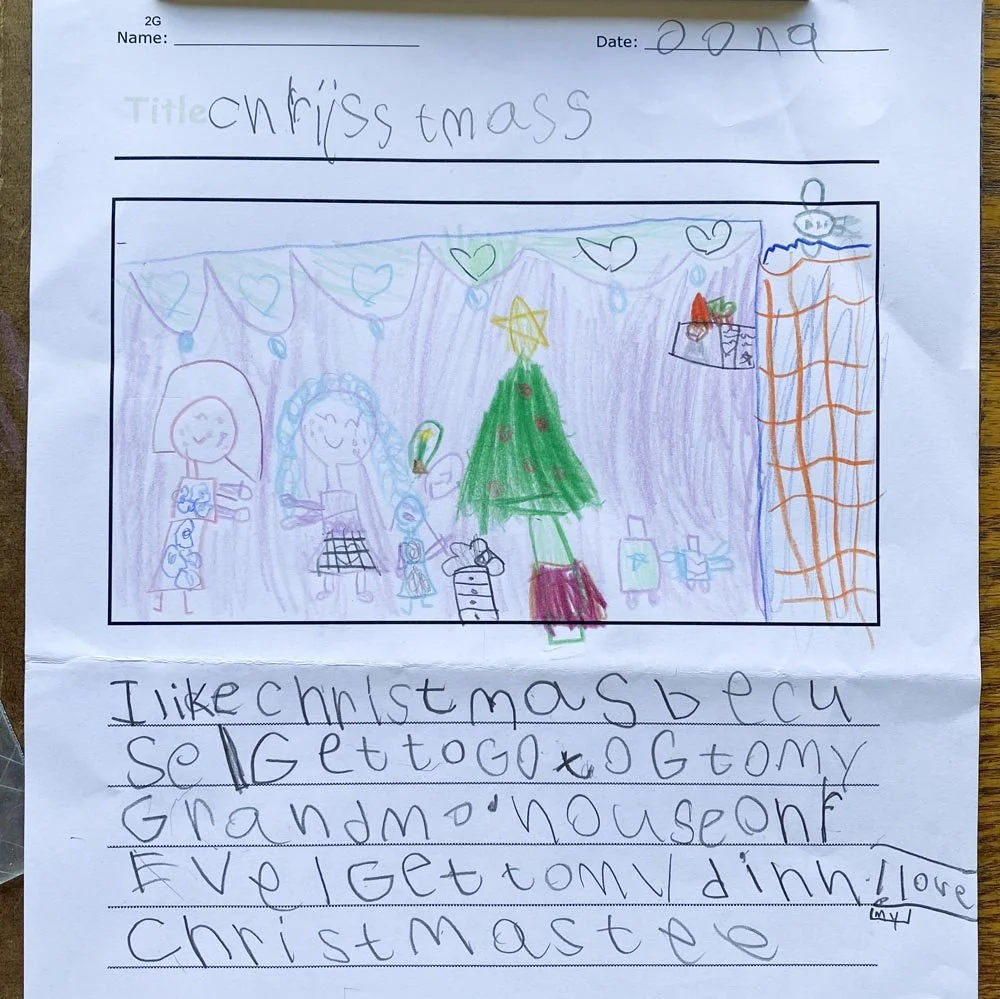 2G
Name:
Date: Oona
Title chrijss tmass
I like christmas becu
se I Get to GO x OG to my
Grandmo' house on
Eve I Get to my dinn ! I love
my
Christmas tee